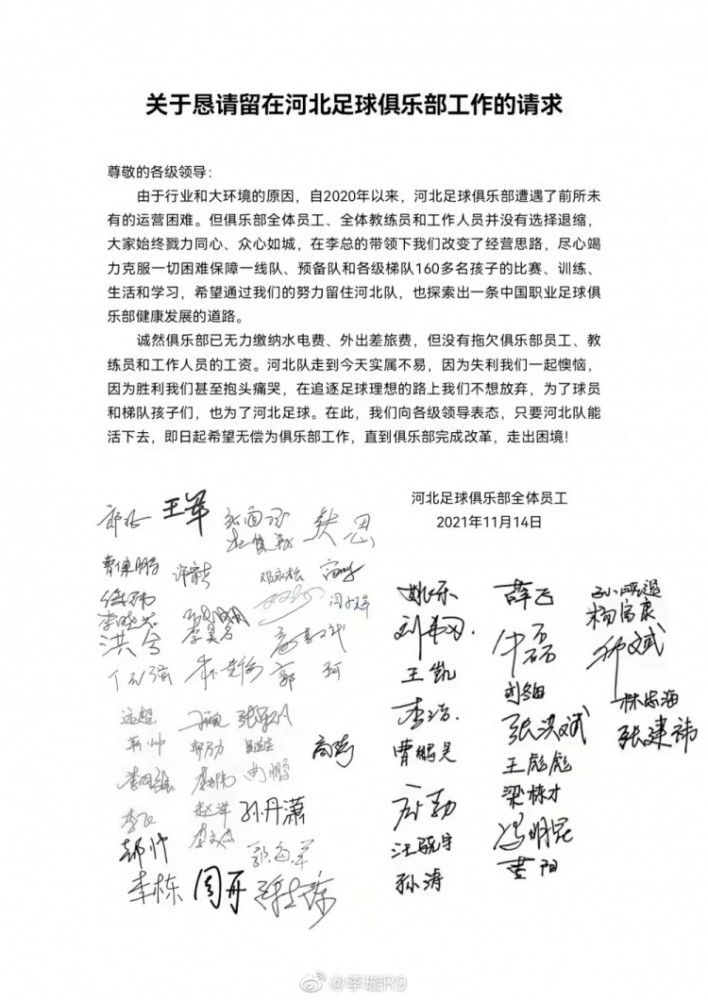 关于恳请留在河北足球俱乐部工作的请求
尊敬的各级领导：
由于行业和大环境的原因，自2020年以来，河北足球俱乐部遭遇了前所未
有的运营困难。但俱乐部全体员工、全体教练员和工作人员并没有选择退缩，
大家始终戮力同心、众心如城，在李总的带领下我们改变了经营思路，尽心竭
力克服一切困难保障一线队、预备队和各级梯队160多名孩子的比赛、训练、
生活和学习，希望通过我们的努力留住河北队，也探索出一条中国职业足球俱
乐部健康发展的道路。
诚然俱乐部已无力缴纳水电费、外出差旅费，但没有拖欠俱乐部员工、教
练员和工作人员的工资。河北队走到今天实属不易，因为失利我们一起懊恼，
因为胜利我们甚至抱头痛哭，在追逐足球理想的路上我们不想放弃，为了球员
和梯队孩子们，也为了河北足球。在此，我们向各级领导表态，只要河北队能
活下去，即日起希望无偿为俱乐部工作，直到俱乐部完成改革，走出困境！
河北足球俱乐部全体员工
2021年11月14日
王军
洪兮
郭珂
孙丹潇
李栋 周开
姚乐 薛飞
王凯
张洪斌 张建祎
曹鹏昊
王彪彪
梁栋才
汪晓宇 冯明昆
孙涛 黄阳
@李璇R9